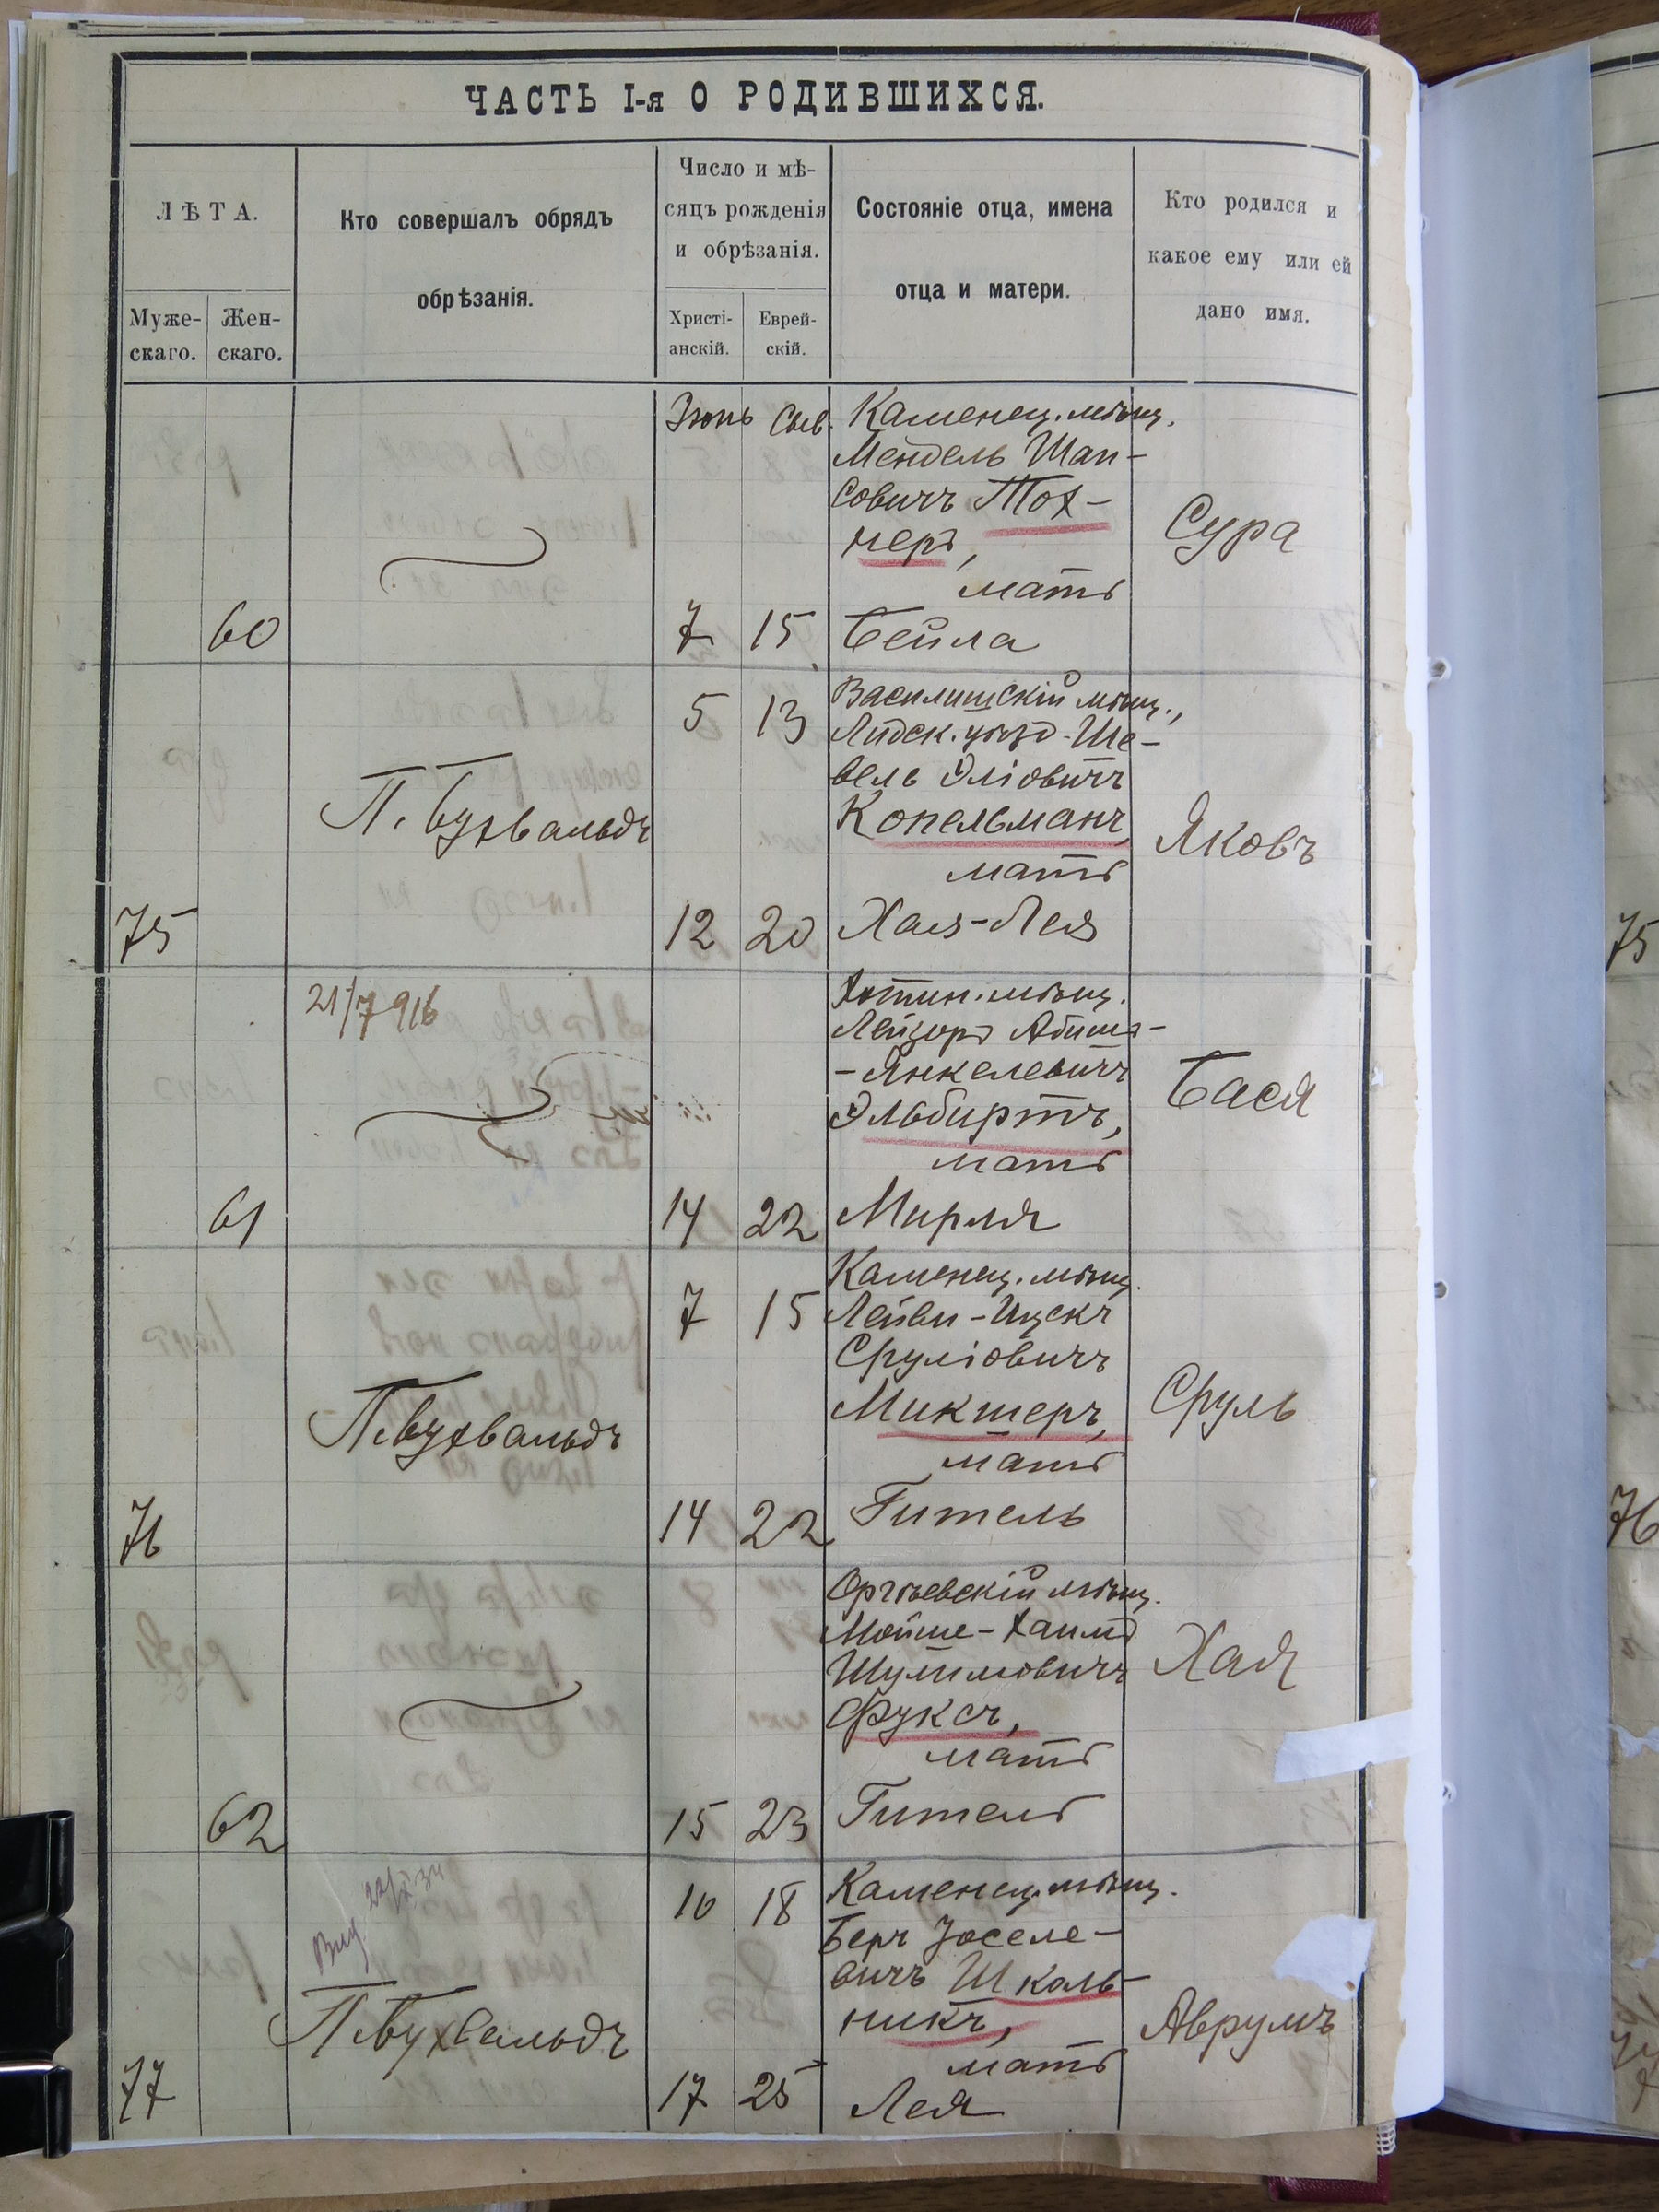 ЧАСТЬ I-я О РОДИВШИХСЯ.
ЛѢТА.
Муже-
скаго.
Жен-
скаго.
Кто совершалъ обрядъ
обрѣзанія.
Число и мѣ-
сяцъ рожденія
и обрѣзанія.
Христі-
анскій.
Еврей-
скій.
Состояніе отца, имена
отца и матери.
Кто родился и
какое ему или ей
дано имя.
Іюнь Сив.
Каменец. мѣщ.
Мендель Шап-
совичъ Тох-
неръ,
мать
60 7 15 Бейла
Сура
5 13 Василишскій мѣщ.,
Лидск. уѣзд. Ше-
вель Эліовичъ
П. Бухвальдъ
Копельманъ,
Яковъ
мать
75 12 20 Хая-Лея
21/7 916
Хотин. мѣщ.
Лейзоръ Абиш-
-Янкелевичъ
Эльбиртъ,
Бася
мать
61 14 22 Мирля
Каменец. мѣщ.
7 15 Лейви-Ицекъ
Сруліовичъ
П. Бухвальдъ
Микшеръ,
Сруль
мать
76 14 22 Гитель
Оргѣевскій мѣщ.
Мойше-Хаимъ
Шулимовичъ
Хая
Фуксъ,
мать
62 15 23 Гитель
10 18 Каменец. мѣщ.
Беръ Іоселе-
вичъ Школь-
никъ,
П. Бухвальдъ
Аврумъ
мать
77 17 25 Лея
75
76